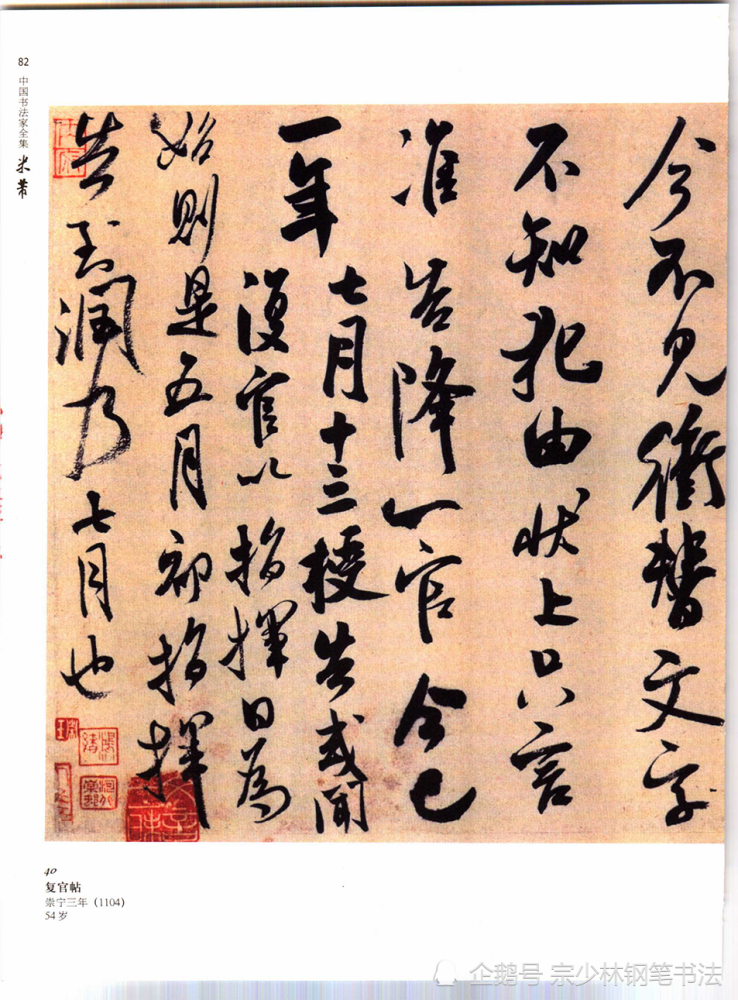 82
中国书法家全集 米芾
今不見衝替文字
不知犯由狀上只言
准告降一官今已
一年七月十三授告或聞
復官以指揮日為
始則是五月初指揮
告至潤乃七月也
40
复官帖
崇宁三年（1104）
54岁
企鹅号 宗少林钢笔书法